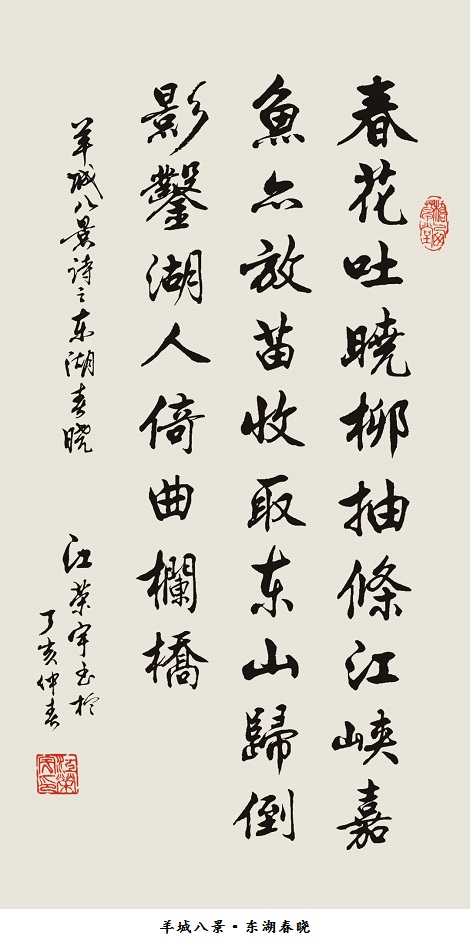 春花吐曉柳抽條江峽嘉
魚亦放苗收取东山歸倒
影鑿湖人倚曲欄橋
羊城八景诗之东湖春晓
江荣宇
丁亥仲春
江榮宇印
羊城八景·东湖春晓